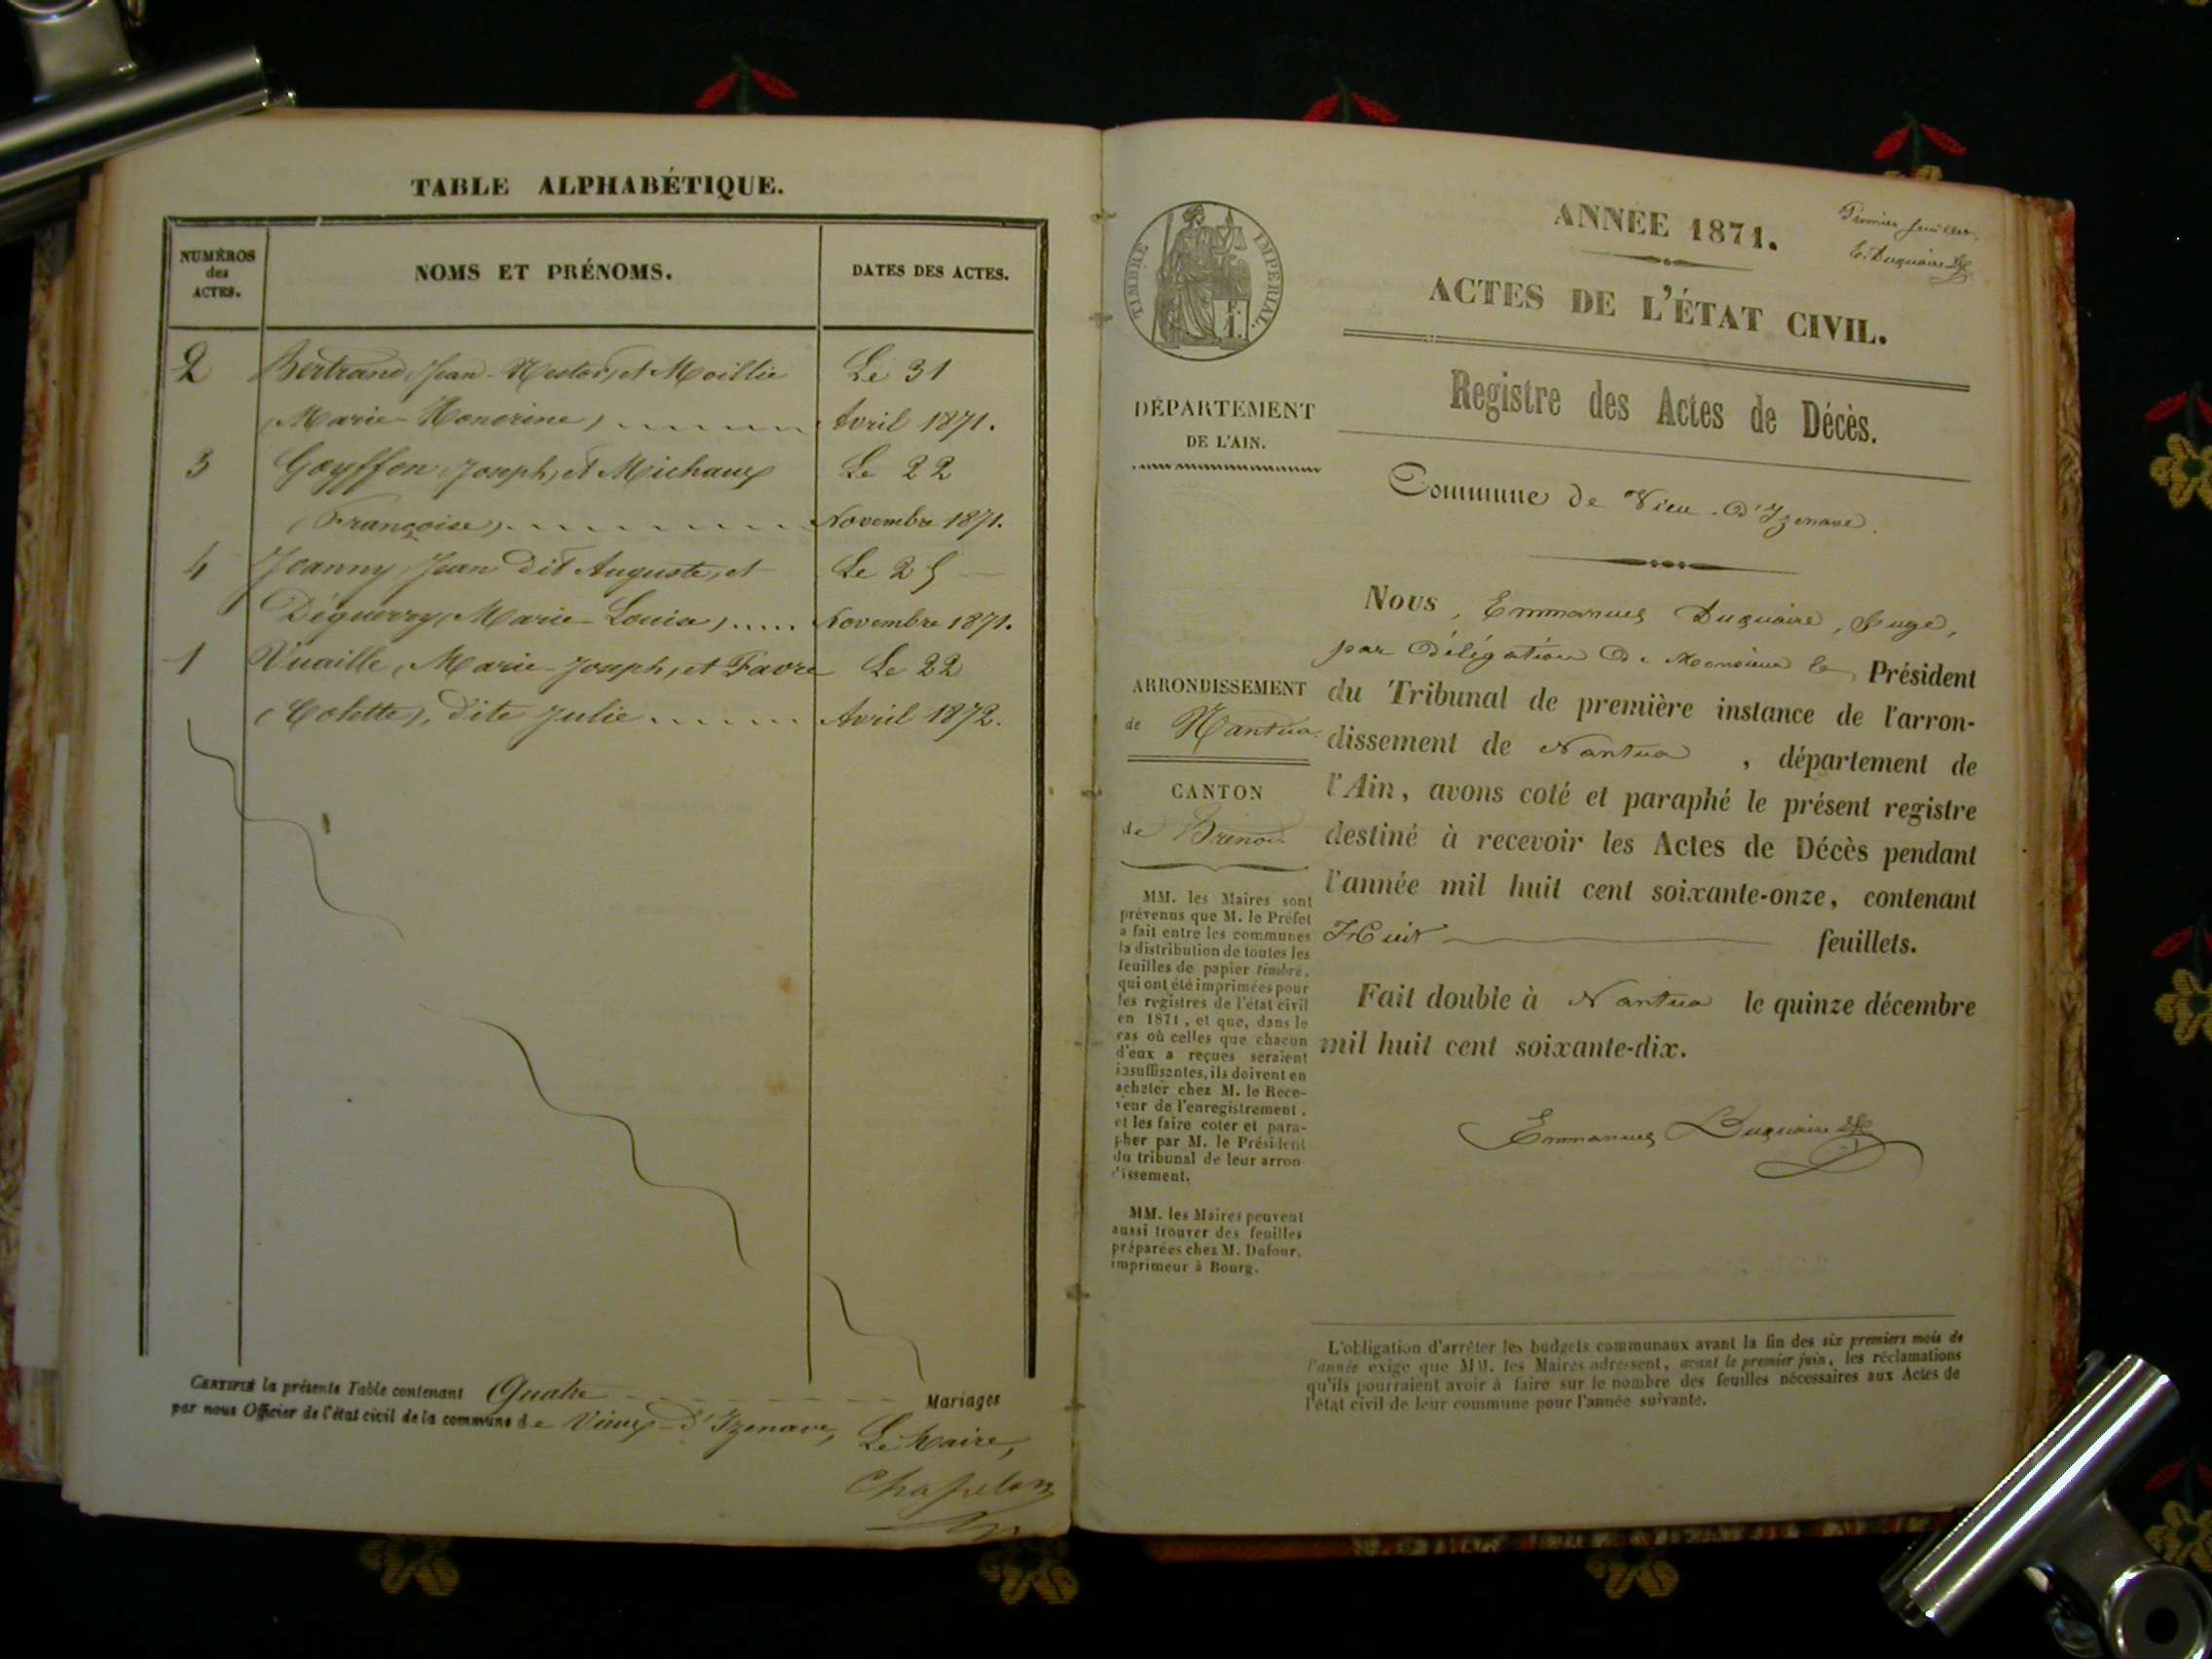 TABLE ALPHABÉTIQUE.
NUMÉROS des ACTES.
NOMS ET PRÉNOMS.
DATES DES ACTES.
2 Bertrand (Jean-Nestor), et Moillie Le 31
(Marie-Honorine) Avril 1871.
3 Goyffon (Joseph), et Michaux Le 22
(Françoise) Novembre 1871.
4 Jeanny Jean dit Auguste, et Le 25
Déguerry (Marie-Louise) Novembre 1871.
1 Vuaille (Marie-Joseph), et Favre Le 22
(Colette), dite Julie Avril 1872.
CERTIFIÉ la présente Table contenant Quatre Mariages
par nous Officier de l'état civil de la commune de Vieux-d'Izenave,
Le Maire,
Chapelon
TIMBRE IMPÉRIAL.
Premier feuillet.
E. Duquaire
ANNÉE 1871.
ACTES DE L'ÉTAT CIVIL.
Registre des Actes de Décès.
Commune de Vieu-d'Izenave.
DÉPARTEMENT
DE L'AIN.
ARRONDISSEMENT
de Nantua.
CANTON
de Brénod
MM. les Maires sont
prévenus que M. le Préfet
a fait entre les communes
la distribution de toutes les
feuilles de papier timbré,
qui ont été imprimées pour
les registres de l'état civil
en 1871, et que, dans le
cas où celles que chacun
d'eux a reçues seraient
insuffisantes, ils doivent en
acheter chez M. le Rece-
veur de l'enregistrement,
et les faire coter et para-
pher par M. le Président
du tribunal de leur arron-
dissement.
MM. les Maires peuvent
aussi trouver des feuilles
préparées chez M. Dufour,
imprimeur à Bourg.
Nous, Emmanuel Duquaire, Juge,
par délégation de Monsieur le Président
du Tribunal de première instance de l'arron-
dissement de Nantua, département de
l'Ain, avons coté et paraphé le présent registre
destiné à recevoir les Actes de Décès pendant
l'année mil huit cent soixante-onze, contenant
Huit feuillets.
Fait double à Nantua le quinze décembre
mil huit cent soixante-dix.
Emmanuel Duquaire
L'obligation d'arrêter les budgets communaux avant la fin des six premiers mois de
l'année exige que MM. les Maires adressent, avant le premier juin, les réclamations
qu'ils pourraient avoir à faire sur le nombre des feuilles nécessaires aux Actes de
l'état civil de leur commune pour l'année suivante.